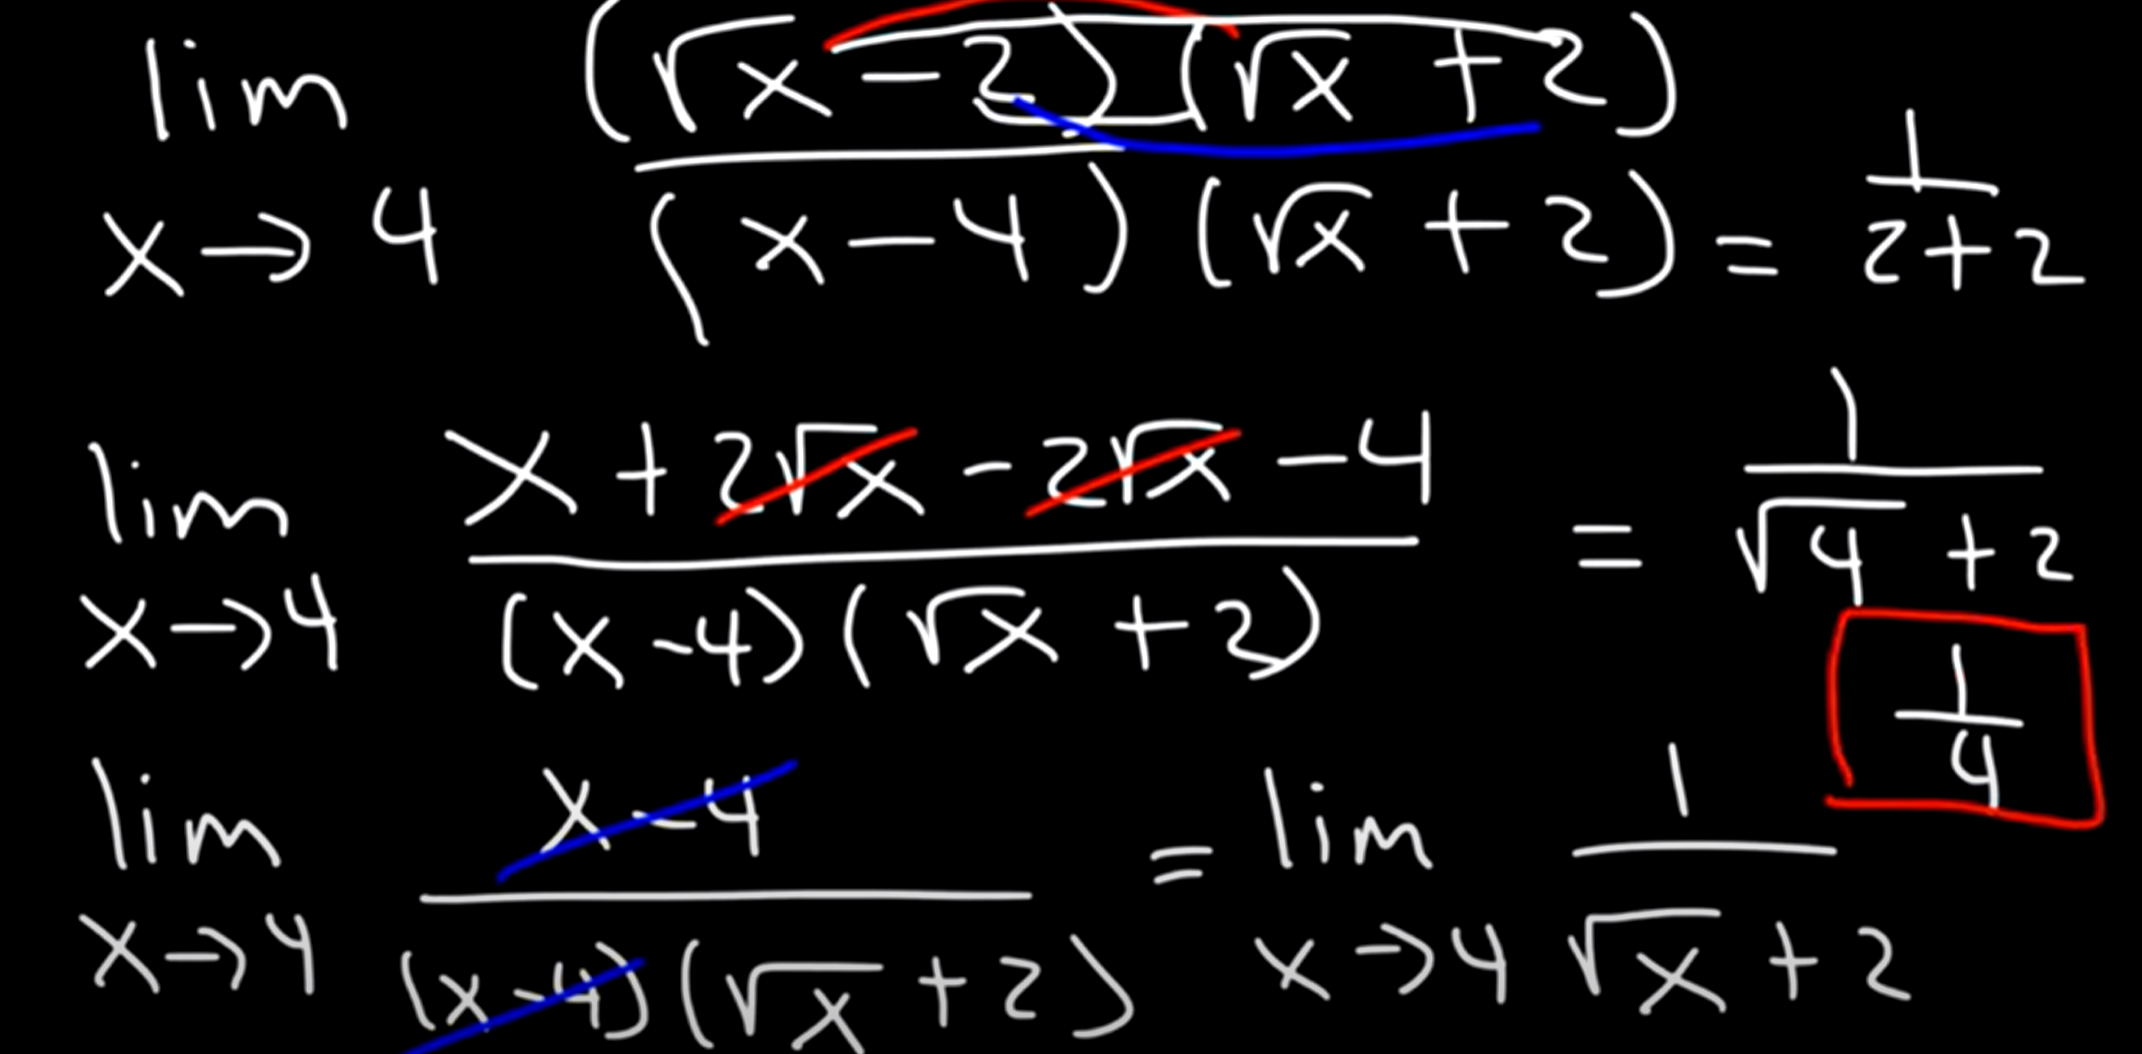 lim x→4 (√x − 2)(√x + 2) / (x − 4)(√x + 2) = 1 / 2+2
lim x→4 x + 2√x − 2√x − 4 / (x−4)(√x + 2) = 1 / √4 + 2
1/4
lim x→4 x−4 / (x−4)(√x + 2) = lim x→4 1 / √x + 2